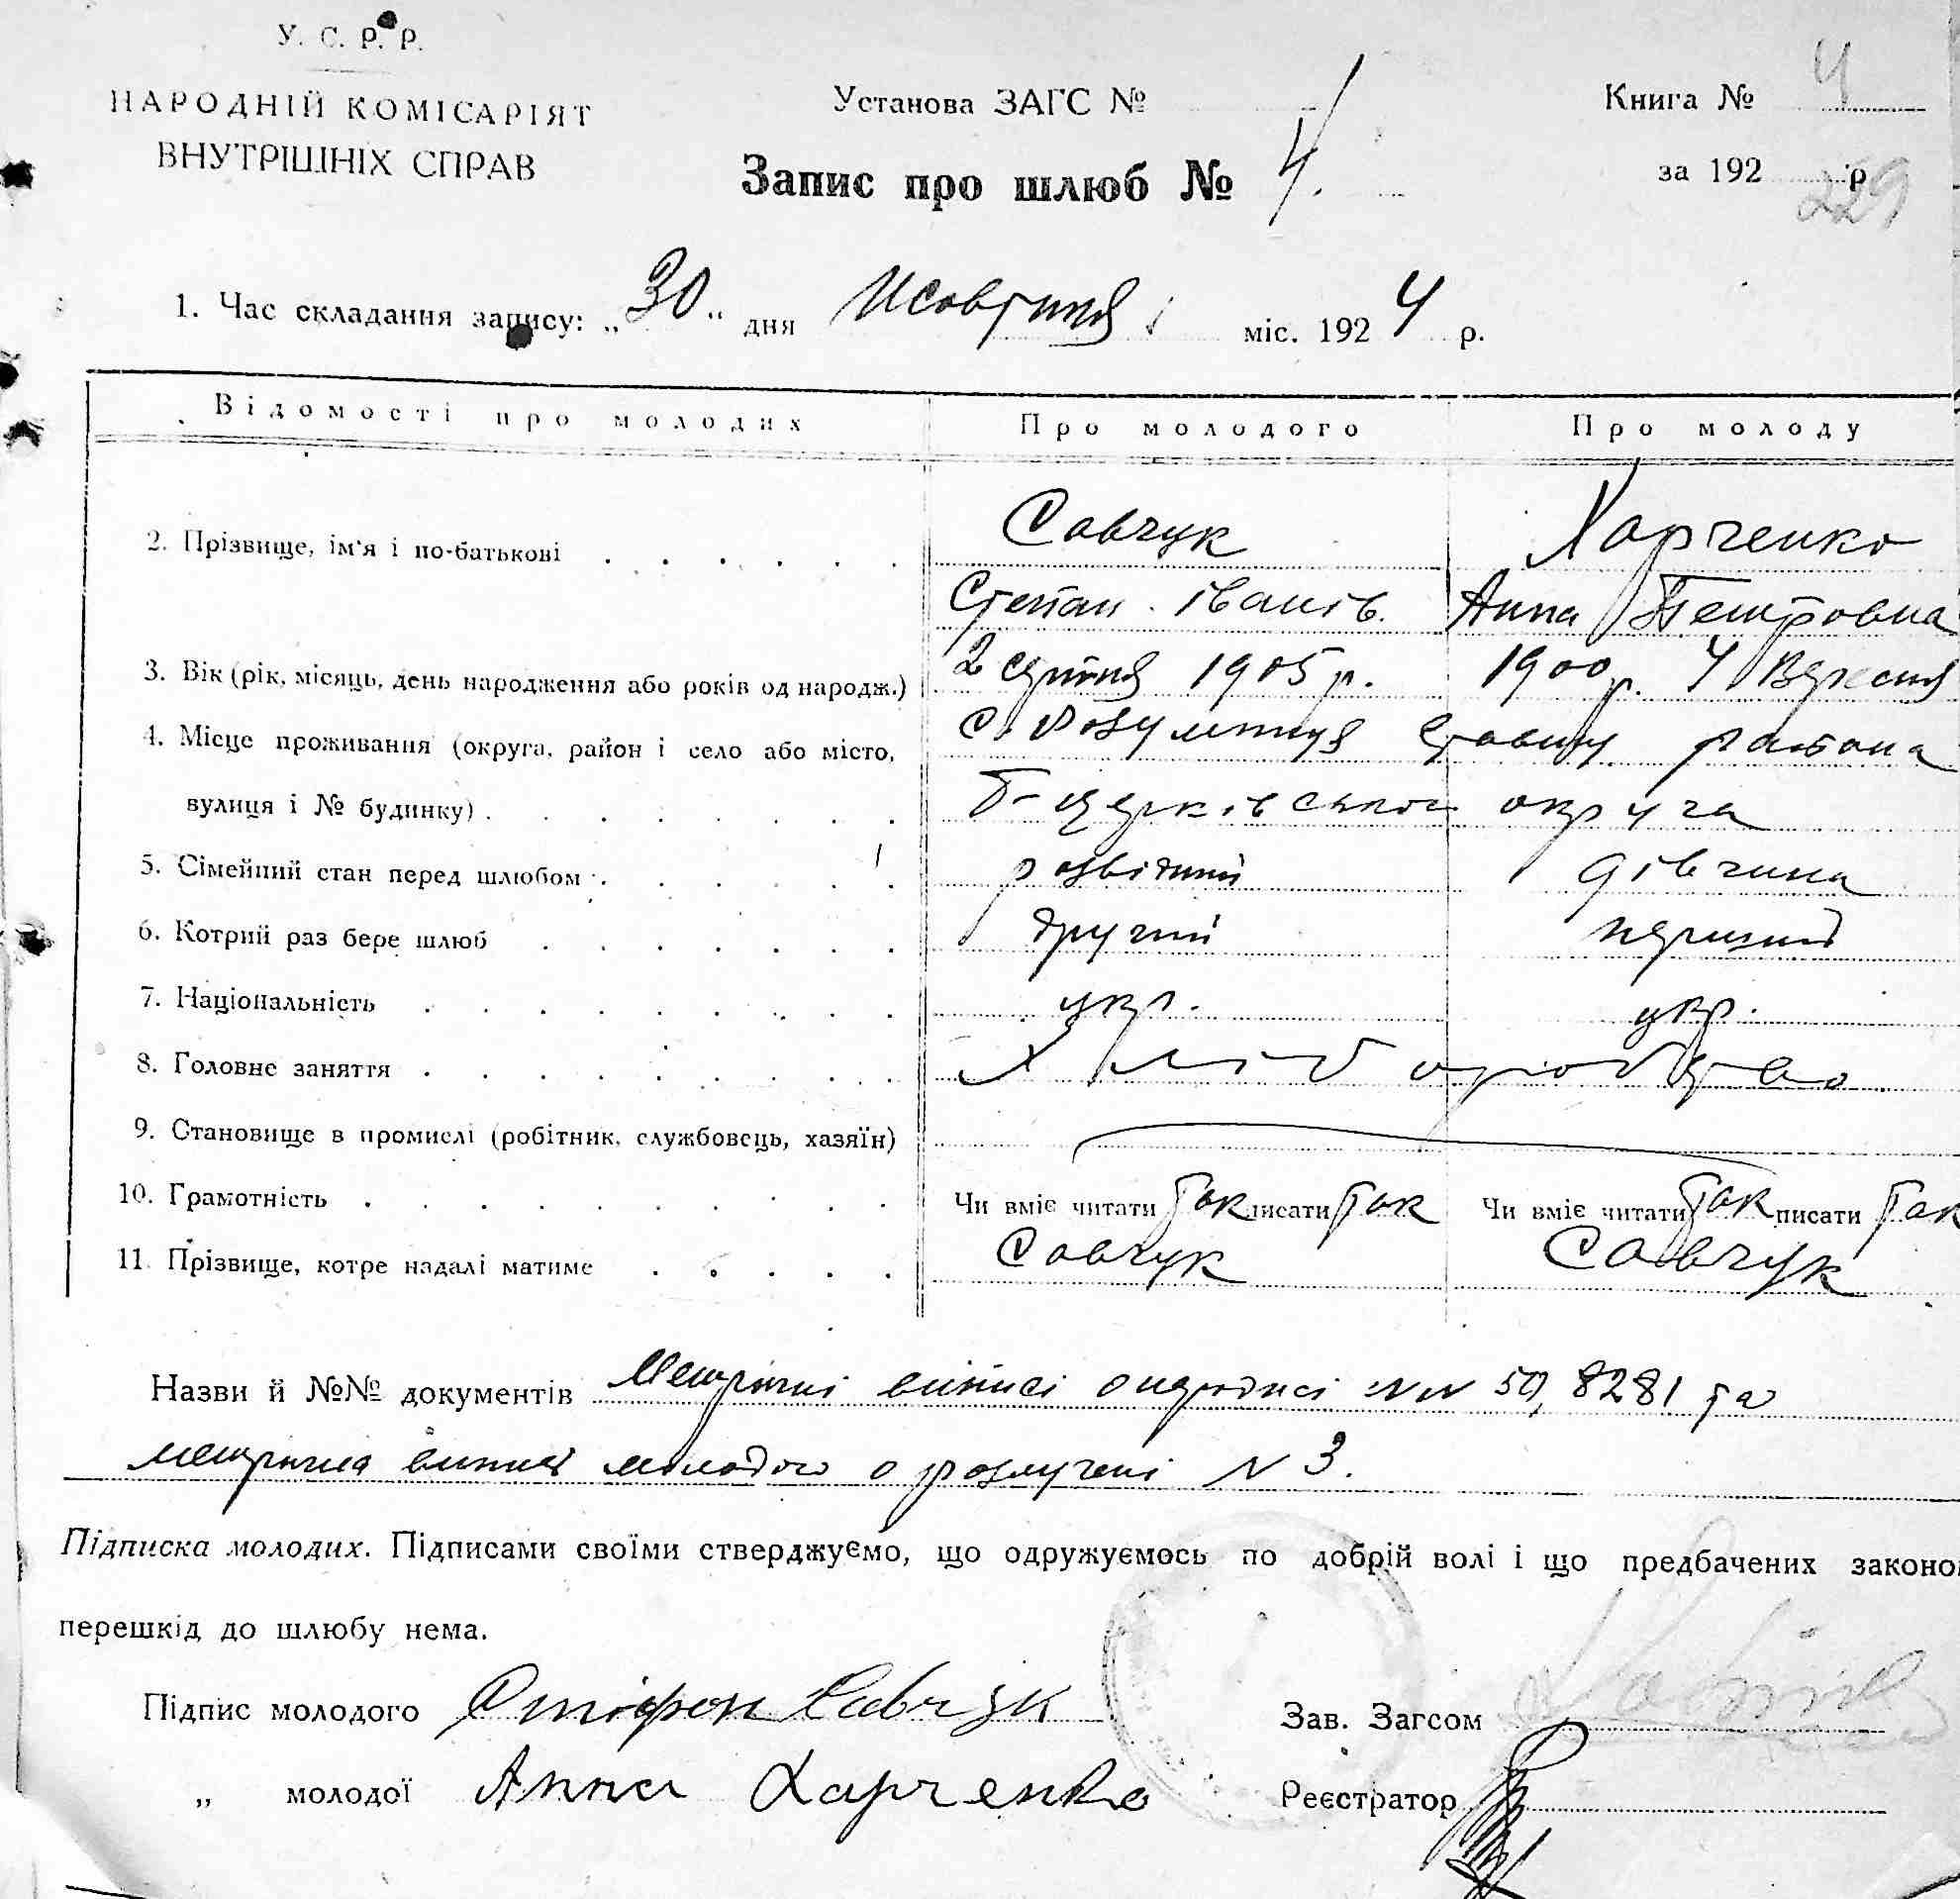 У. С. Р. Р.
НАРОДНІЙ КОМІСАРІЯТ
ВНУТРІШНІХ СПРАВ
Установа ЗАГС №
Запис про шлюб № 4.
Книга № 4
за 192 р
229
1. Час складання запису: „30“ дня Жовтня міс. 1924 р.
Відомості про молодих Про молодого Про молоду
2. Прізвище, ім'я і по-батькові Савчук Харченко
Степан Іванів. Анна Петровна
3. Вік (рік, місяць, день народження або років од народж.) 2 серпня 1905 р. 1900 р. 4 Вересня
4. Місце проживання (округа, район і село або місто, с. Розумниця Ставищ. района
вулиця і № будинку) Б-церківськои округа
5. Сімейний стан перед шлюбом розвідний дівчина
6. Котрий раз бере шлюб другий перший
7. Національність укр. укр.
8. Головне заняття Хліборобство
9. Становище в промислі (робітник, службовець, хазяїн)
10. Грамотність Чи вміє читати так писати так Чи вміє читати так писати так
11. Прізвище, котре надалі матиме Савчук Савчук
Назви й №№ документів Метричні виписі о народжені №№ 59, 8281 та
метрична випись молодого о розлучені № 3.
Підписка молодих. Підписами своїми стверджуємо, що одружуємось по добрій волі і що предбачених законо
перешкід до шлюбу нема.
Підпис молодого Савчук
Зав. Загсом
„ молодої Анна Харченко
Реєстратор